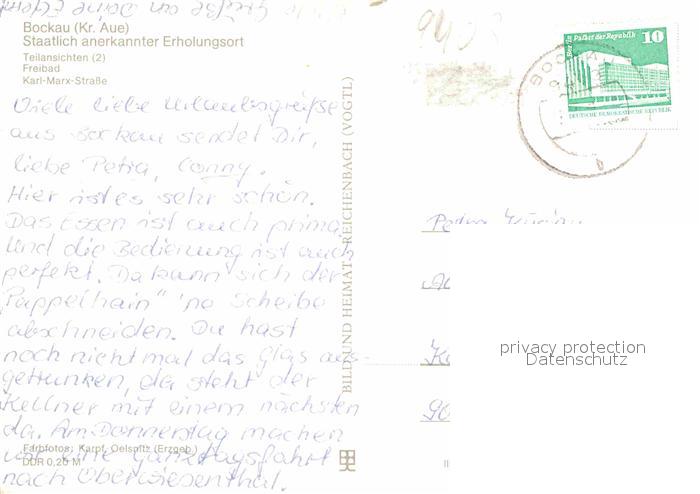 Bockau (Kr. Aue)
Staatlich anerkannter Erholungsort
Teilansichten (2)
Freibad
Karl-Marx-Straße
Viele liebe Urlaubsgrüße
aus Bockau sendet Dir,
liebe Petra, Conny.
Hier ist es sehr schön.
Das Essen ist auch prima
und die Bedienung ist auch
perfekt. Da kann sich der
"Pappelhain" 'ne Scheibe
abschneiden. Du hast
noch nicht mal das Glas aus-
getrunken, da steht der
Kellner mit einem nächsten
da. Am Donnerstag machen
wir eine Ganztagsfahrt
nach Oberwiesenthal.
Farbfotos: Karpf, Oelsnitz (Erzgeb.)
DDR 0,20 M
BILD UND HEIMAT REICHENBACH (VOGTL)
Berlin Palast der Republik
10
DEUTSCHE DEMOKRATISCHE REPUBLIK
BOCKAU
b
Petra
90
privacy protection
Datenschutz